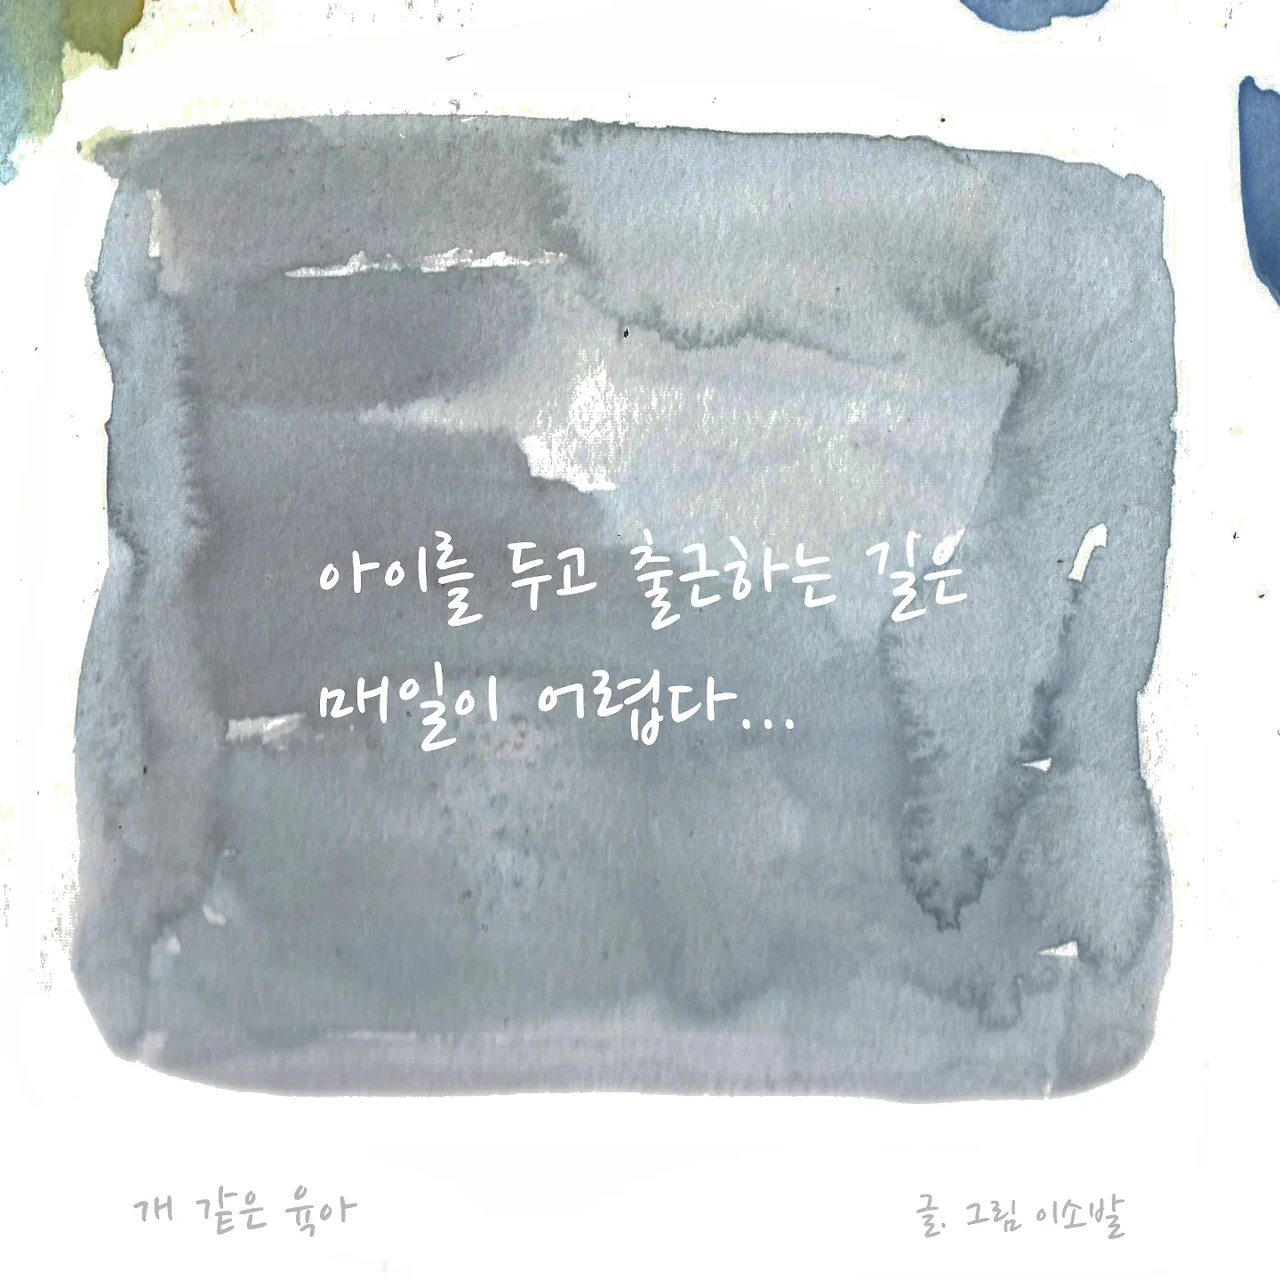 아이를 두고 출근하는 길은
매일이 어렵다...
개 같은 육아
글. 그림 이소발